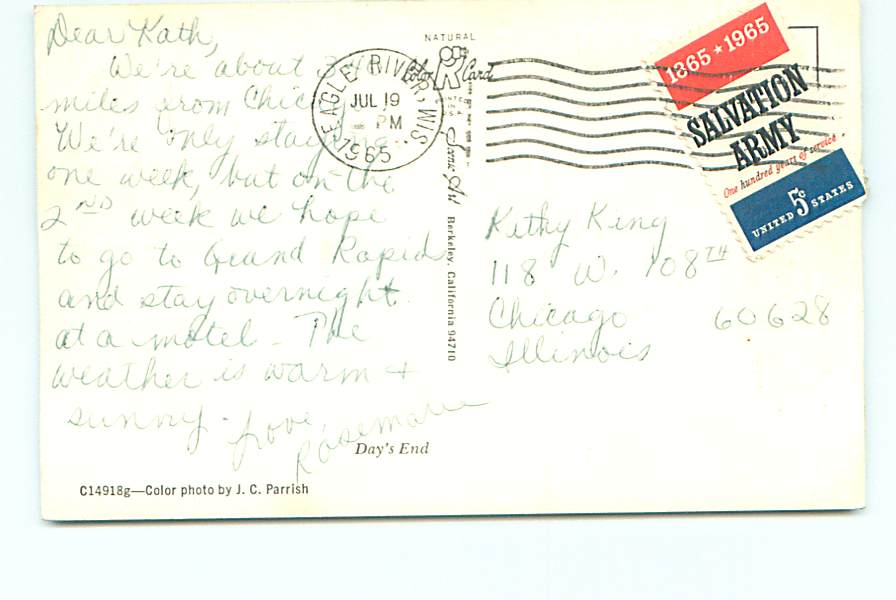 Dear Kath,
We're about
miles from Chic
We're only staying
one week, but on the
2ND week we hope
to go to Grand Rapids
and stay overnight
at a motel - The
weather is warm +
sunny - Love,
Rosemarie
Day's End
C14918g—Color photo by J. C. Parrish
NATURAL
Color Card
Scenic Art Berkeley, California 94710
EAGLE RIVER, WIS.
JUL 19
PM
1965
1865 ★ 1965
SALVATION
ARMY
One hundred years of service
5c
UNITED STATES
Kathy King
118 W. 108TH
Chicago 60628
Illinois